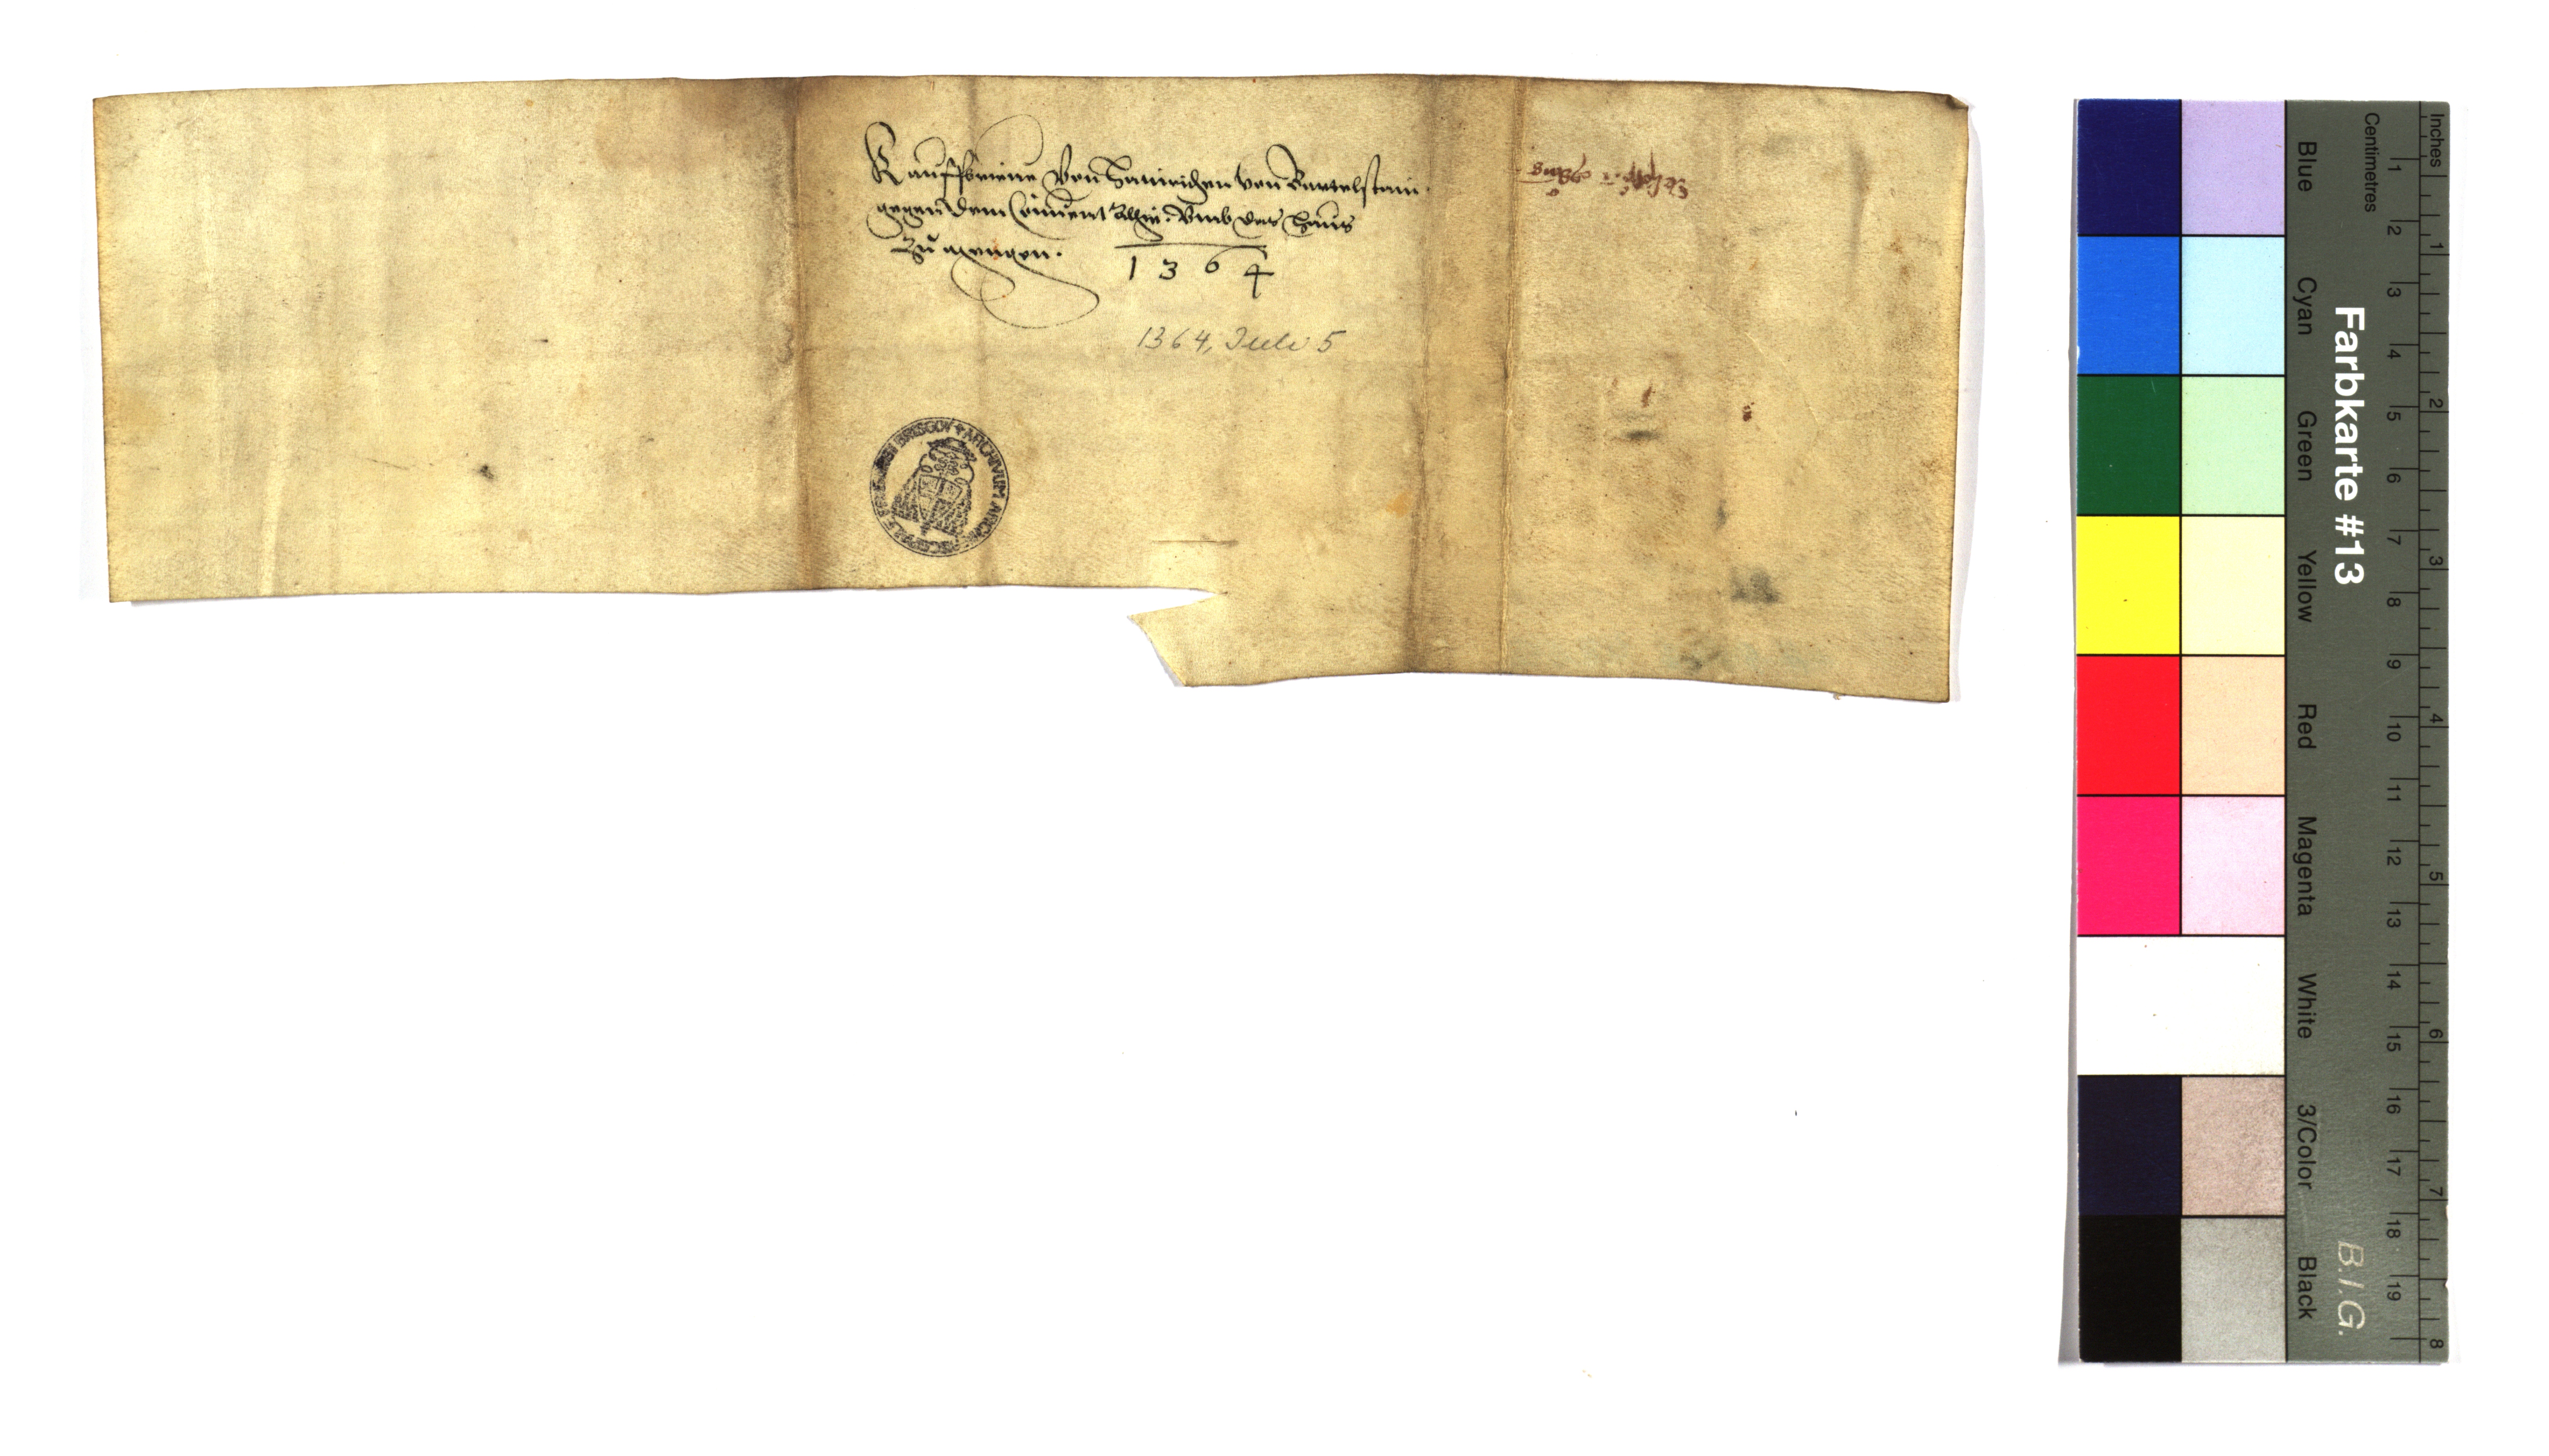 Kauffbrieue von Hainrichen von Bartelstain
gegen dem Conuent Allhie. vmb das haus
Zu mengen.
1364
1364, Juli 5
ARCHIVUM ARCHIEPISCOPALE FRIBURGEN BRISGOV
Farbkarte #13
B.I.G.
Inches 1 2 3 4 5 6 7 8
Centimetres 1 2 3 4 5 6 7 8 9 10 11 12 13 14 15 16 17 18 19
Blue Cyan Green Yellow Red Magenta White 3/Color Black